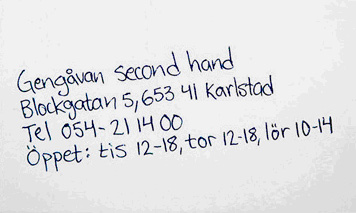 Gengåvan second hand
Blockgatan 5, 653 41 Karlstad
Tel 054-21 14 00
Öppet: tis 12-18, tor 12-18, lör 10-14